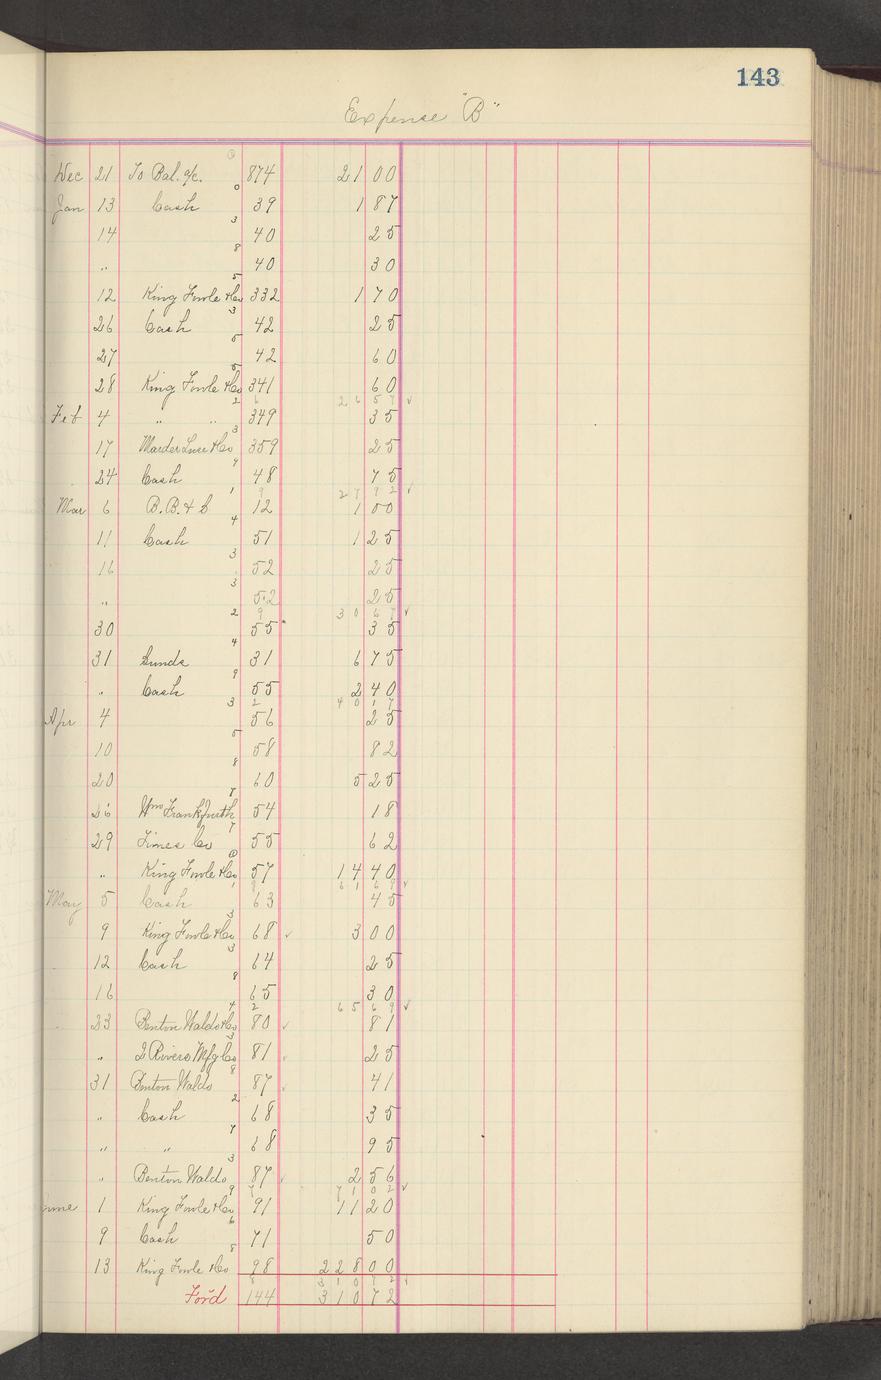 143
Expense "B"
Dec 21 To Bal. a/c. 874 21 00
0
Jan 13 Cash 39 1 87
3
14 40 25
8
" 40 30
5
12 King Fowle & Co 332 1 70
3
26 Cash 42 25
5
27 42 60
5
28 King Fowle & Co 341 60
2 6 26 57 √
Feb 4 " " 349 35
3
17 Marder Luse & Co 359 25
9
24 Cash 48 75
1 9 27 92 √
Mar 6 B. B. & C 12 1 00
4
11 Cash 51 1 25
3
16 52 25
3
" 52 25
2 9 30 67 √
30 55 35
4
31 Sunds 31 6 75
9
" Cash 55 2 40
3 2 40 17
Apr 4 56 25
5
10 58 82
8
20 60 5 25
8
26 Wm Frankfurth 54 18
7
29 Times Co 55 62
" King Fowle & Co 57 14 40
1 8 61 69 √
May 5 Cash 63 45
3
9 King Fowle & Co 68 √ 3 00
3
12 Cash 64 25
8
16 65 30
4 2 65 69 √
23 Benton Waldo & Co 80 √ 81
3
" 2 Rivers Mfg Co 81 √ 25
8
31 Benton Waldo 87 √ 41
2
" Cash 68 35
7
" " 68 95
3
" Benton Waldo 87 √ 2 56
9 7 71 02 √
June 1 King Fowle & Co 91 11 20
6
9 Cash 71 50
8
13 King Fowle & Co 98 228 00
8 310 72 √
For'd 144 310 72